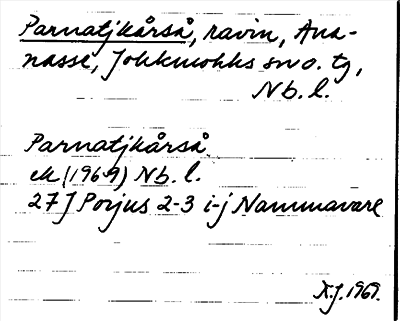 Parnatjkårså, ravin, Ana-
nasse, Jokkmokks sn o. tg,
Nb. l.
Parnatjkårså
ek (1969) Nb. l.
27 J Porjus 2-3 i-j Nammavare
K.J. 1969.